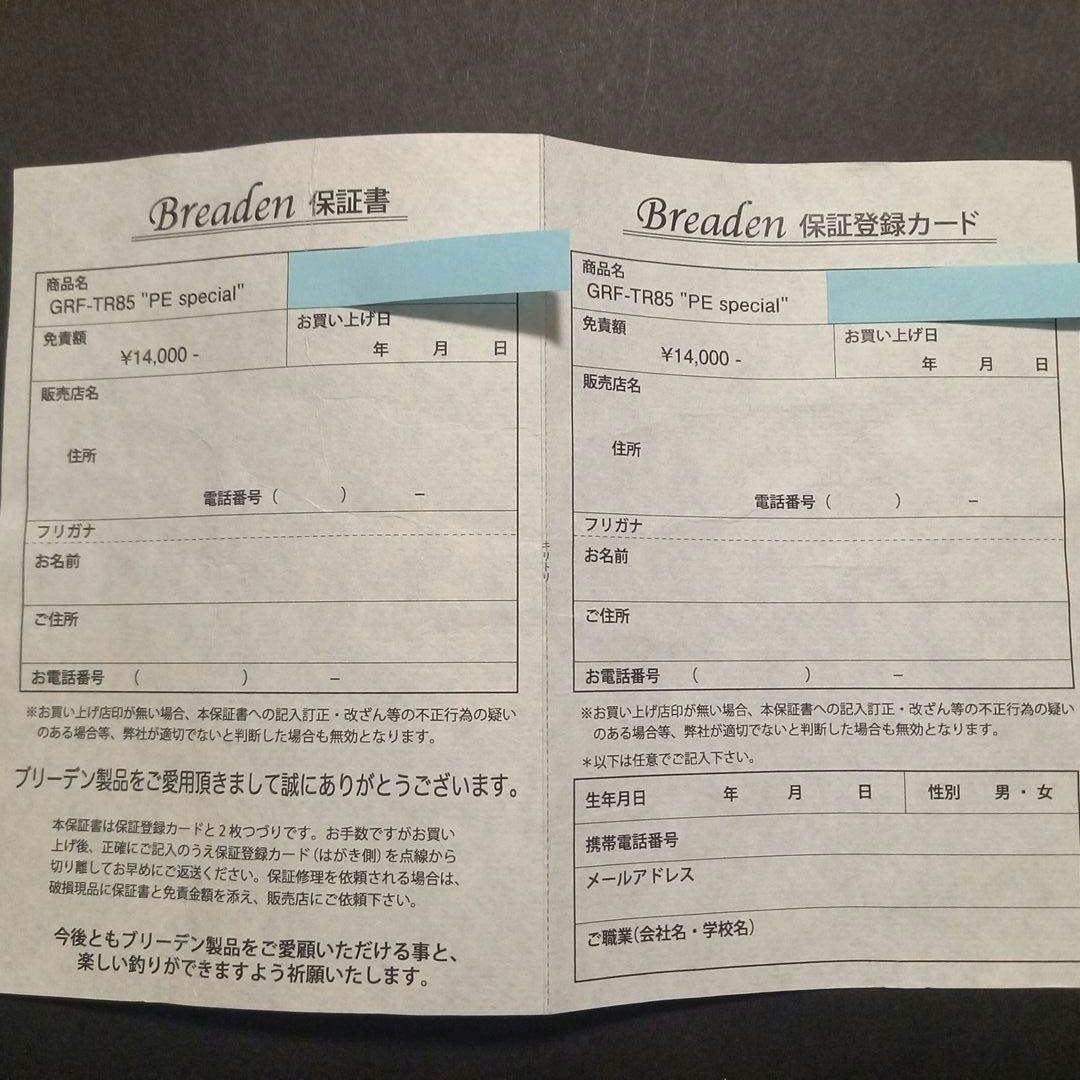 Breaden 保証書
商品名
GRF-TR85 "PE special"
免責額
¥14,000 -
お買い上げ日
年 月 日
販売店名
住所
電話番号 ( ) −
フリガナ
お名前
ご住所
お電話番号 ( ) −
※お買い上げ店印が無い場合、本保証書への記入訂正・改ざん等の不正行為の疑い
のある場合等、弊社が適切でないと判断した場合も無効となります。
ブリーデン製品をご愛用頂きまして誠にありがとうございます。
本保証書は保証登録カードと2枚つづりです。お手数ですがお買い
上げ後、正確にご記入のうえ保証登録カード(はがき側)を点線から
切り離してお早めにご返送ください。保証修理を依頼される場合は、
破損現品に保証書と免責金額を添え、販売店にご依頼下さい。
今後ともブリーデン製品をご愛顧いただける事と、
楽しい釣りができますよう祈願いたします。
キリトリ
Breaden 保証登録カード
商品名
GRF-TR85 "PE special"
免責額
¥14,000 -
お買い上げ日
年 月 日
販売店名
住所
電話番号 ( ) −
フリガナ
お名前
ご住所
お電話番号 ( ) −
※お買い上げ店印が無い場合、本保証書への記入訂正・改ざん等の不正行為の疑い
のある場合等、弊社が適切でないと判断した場合も無効となります。
*以下は任意でご記入下さい。
生年月日 年 月 日 性別 男・女
携帯電話番号
メールアドレス
ご職業(会社名・学校名)